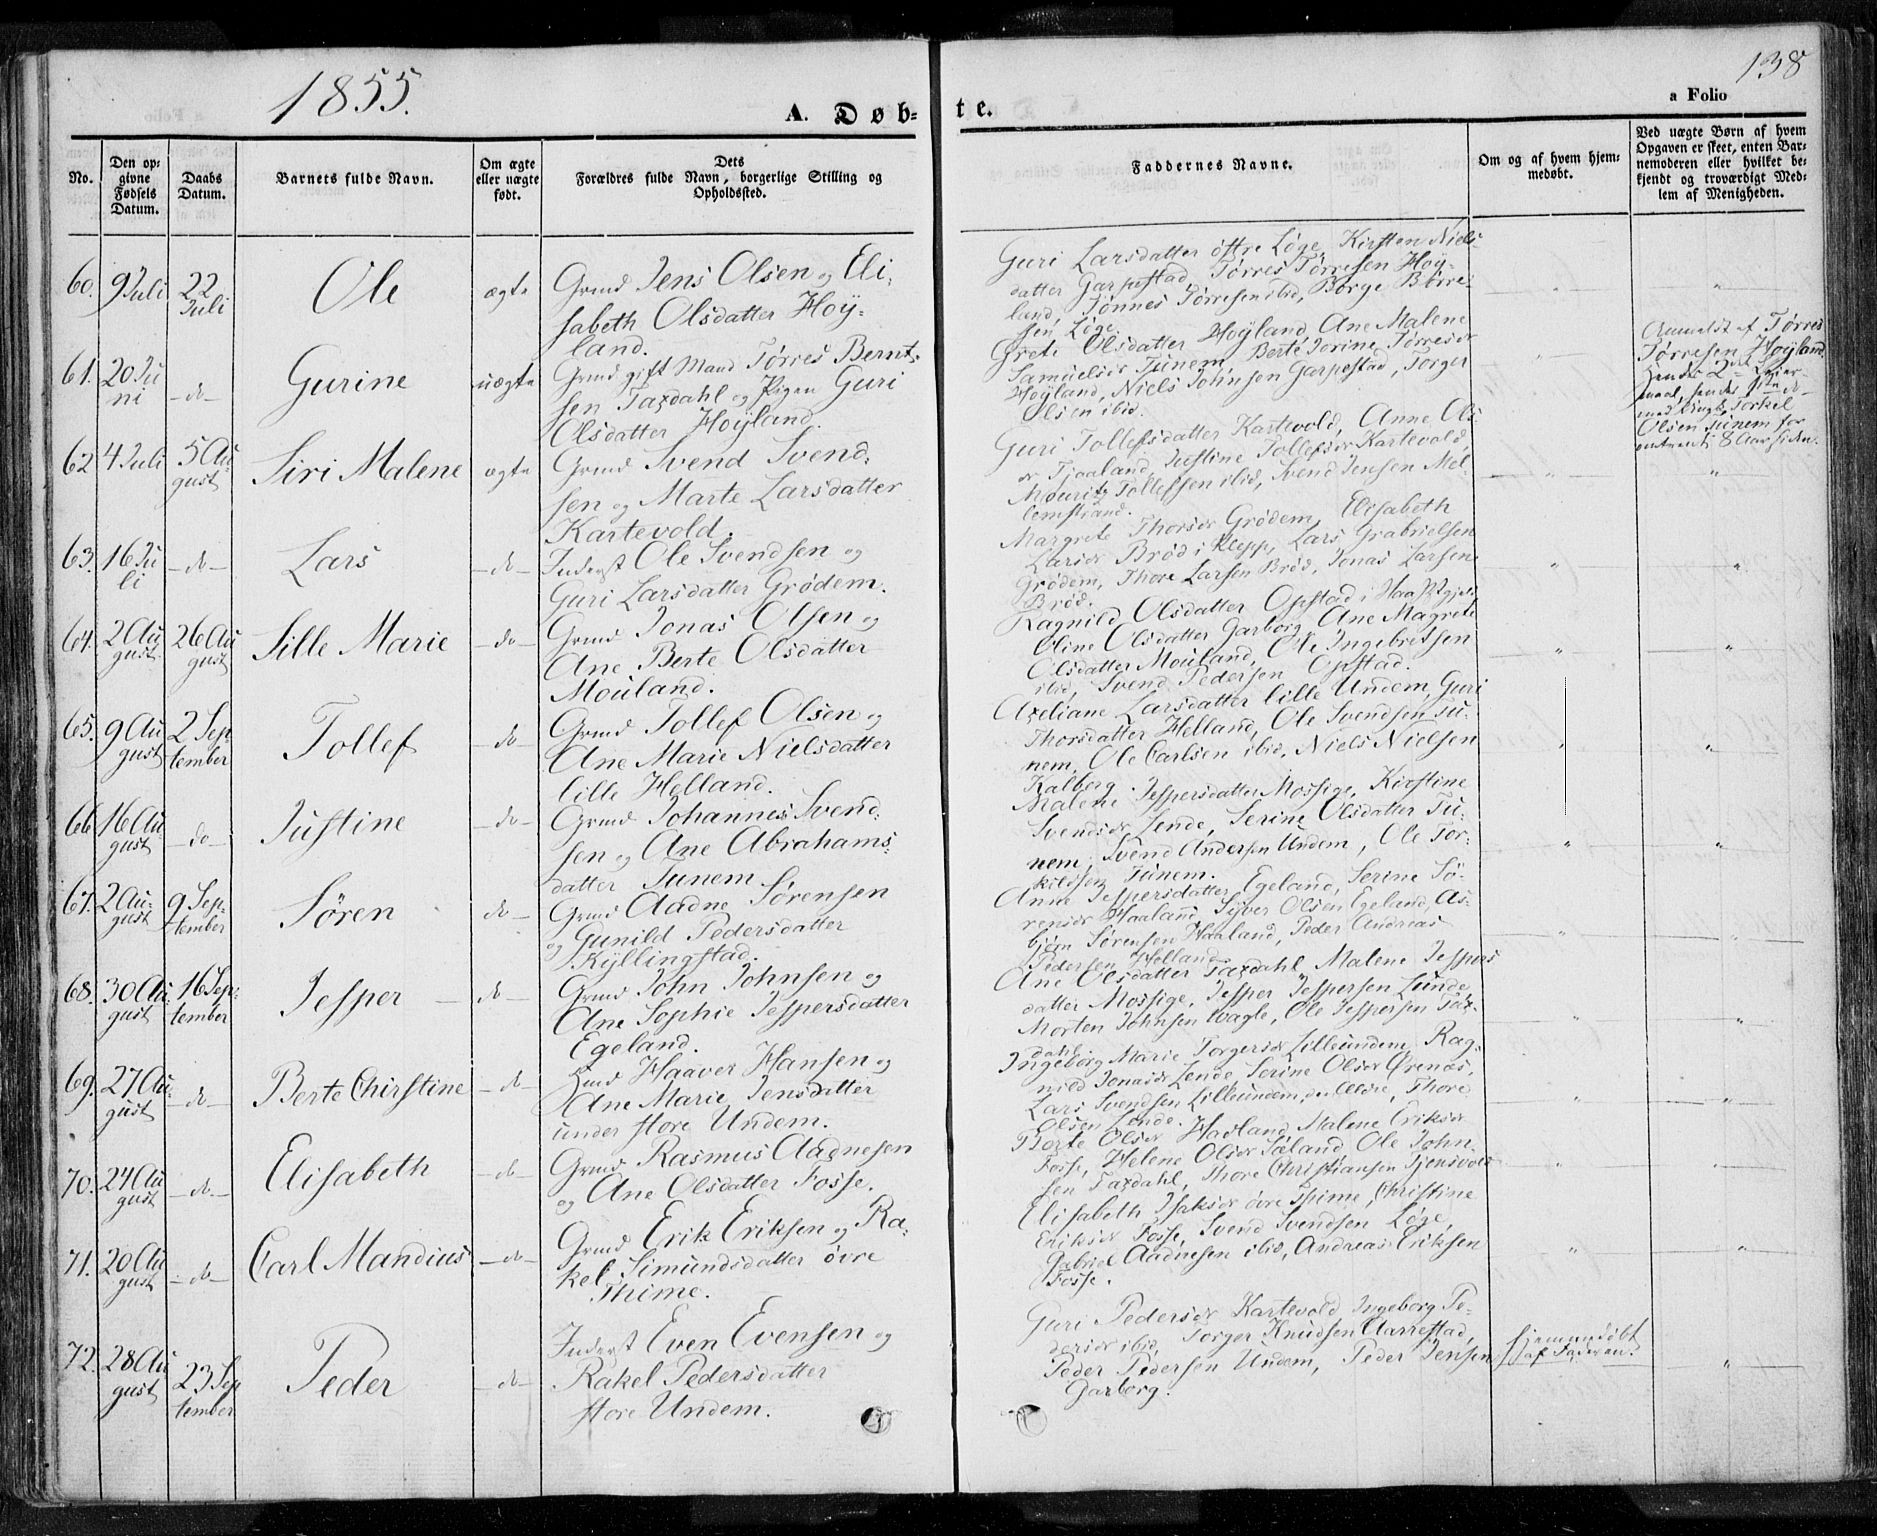 1855.
138
A. Døb-
te.
a Folio
No.
Den op-
givne
Fødsels
Datum.
Daabs
Datum.
Barnets fulde Navn.
Om ægte
eller uægte
født.
Dets
Forældres fulde Navn, borgerlige Stilling og
Opholdssted.
Faddernes Navne.
Om og af hvem hjem-
medøbt.
Ved uægte Børn af hvem
Opgaven er skeet, enten Bar-
nemoderen eller hvilket be-
kjendt og troværdigt Med-
lem af Menigheden.
60. 9 Juli 22 Juli Ole ægte
Grmd Jens Olsen og Eli-
sabeth Olsdatter Höÿ-
land.
Guri Larsdatter østre Löge, Kirsten Niels-
datter Garpestad, Törres Törresen Höÿ-
land, Tönnes Törresen ibid, Börge Börre-
sen Löge.
61. 20 Ju ni do Gurine uægte
Grmd gift Mand Törres Bernt-
sen Taxdahl og Pigen Guri
Olsdatter Höÿland.
Grete Olsdatter Höÿland, Ane Malene
Samuelsdr Tunem, Berte Jorine Törresdr
Höÿland, Niels Johnsen Garpestad, Torger
Olsen ibid.
Anmeldt af Törres
Törresen Höÿland
Hendes 2det Leier-
maal, hendes 1ste do
med Ungk. Torkel
Olsen Tunem for
omtrent 8 Aar siden.
62 4 Juli 5 Au gust Siri Malene ægte
Grmd Svend Svend-
sen og Marte Larsdatter
Kartevold.
Guri Tollefsdatter Kartevold, Anne Ols
dr Tjaaland, Justine Tollefsdr Kartevold
Mouritz Tollefsen ibid, Svend Jensen Mel-
lemstrand.
63. 16 Ju li do Lars do
Inderst Ole Svendsen og
Guri Larsdatter Grödem.
Margrete Thorsdr Grödem, Elisabeth
Larsdr Bröd i Klepp, Lars Gabrielsen
Grödem, Thore Larsen Bröd, Jonas Larsen
Bröd.
64. 2 Au gust 26 Au gust Sille Marie do
Grmd Jonas Olsen og
Ane Berte Olsdatter
Mouland.
Ragnild Olsdatter Opstad i Haa Prgjeld
Oline Olsdatter Garborg, Ane Magrete
Olsdatter Mouland, Ole Ingebretsen
ibid, Svend Pedersen Opstad.
65. 9 Au gust 2 Sep- tember Tollef do
Grmd Tollef Olsen og
Ane Marie Nielsdatter
lille Helland.
Axeliane Larsdatter lille Undem, Guri
Thorsdatter Helland, Ole Svendsen Tu-
nem, Ole Carlsen ibid, Niels Nielsen
Kalberg.
66 16 Au gust do Justine do
Grmd Johannes Svend-
sen og Ane Abrahams-
datter Tunem.
Malene Jespersdatter Mossige, Kirstine
Svendsdr Lende, Serine Olsdatter Tu-
nem, Svend Andersen Undem, Ole Tor-
kildsen Tunem.
67. 2 Au- gust 9 Sep- tember Sören do
Grmd Aadne Sörensen
og Gunild Pedersdatter
Kÿllingstad.
Anne Jespersdatter Egeland, Serine Sö-
rensdr Haaland, Syver Olsen Egeland, As-
björn Sörensen Haaland, Peder Andreas
Pedersen Helland.
68. 30 Au gust 16 Sep- tember Jesper do
Grmd John Johnsen og
Ane Sophie Jespersdatter
Egeland.
Ane Olsdatter Taxdahl, Malene Jespers
datter Mossige, Jesper Jespersen Lunde,
Morten Johnsen Wagle, Ole Jespersen Tax-
dahl.
69. 27 Au gust do Berte Chirstine do
Hmd Haaver Hansen og
Ane Marie Jensdatter
under store Undem.
Ingeborg Marie Torgersdr Lilleundem, Rag-
nild Jonasdr Lende, Serine Olsdr Örenæs,
Lars Svendsen Lilleundem, den Ældre, Thore
Olsen Lende.
70. 24 Au gust do Elisabeth do
Grmd Rasmus Aadnesen
og Ane Olsdatter Fosse.
Berte Olsdr Haaland, Malene Eriksdr
Fosse, Helene Olsdr Taland, Ole John-
sen Taxdahl, Thore Christiansen Tjensvold
71. 20 Au gust do Carl Mandius do
Grmd Erik Eriksen og Ra-
kel Simundsdatter övre
Thime.
Elisabeth Isaksdr övre Thime, Christine
Eriksdr Fosse, Svend Svendsen Löge,
Gabriel Aadnesen ibid, Andreas Eriksen
Fosse.
72. 28 Au gust 23 Sep tember Peder do
Inderst Even Evensen og
Rakel Pedersdatter
store Undem.
Guri Pedersdr Kartevold, Ingeborg Pe-
dersdr ibid, Torger Knudsen Aarrestad,
Peder Pedersen Undem, Peder Jensen
Garborg.
hjemmedöbt
af Faderen.